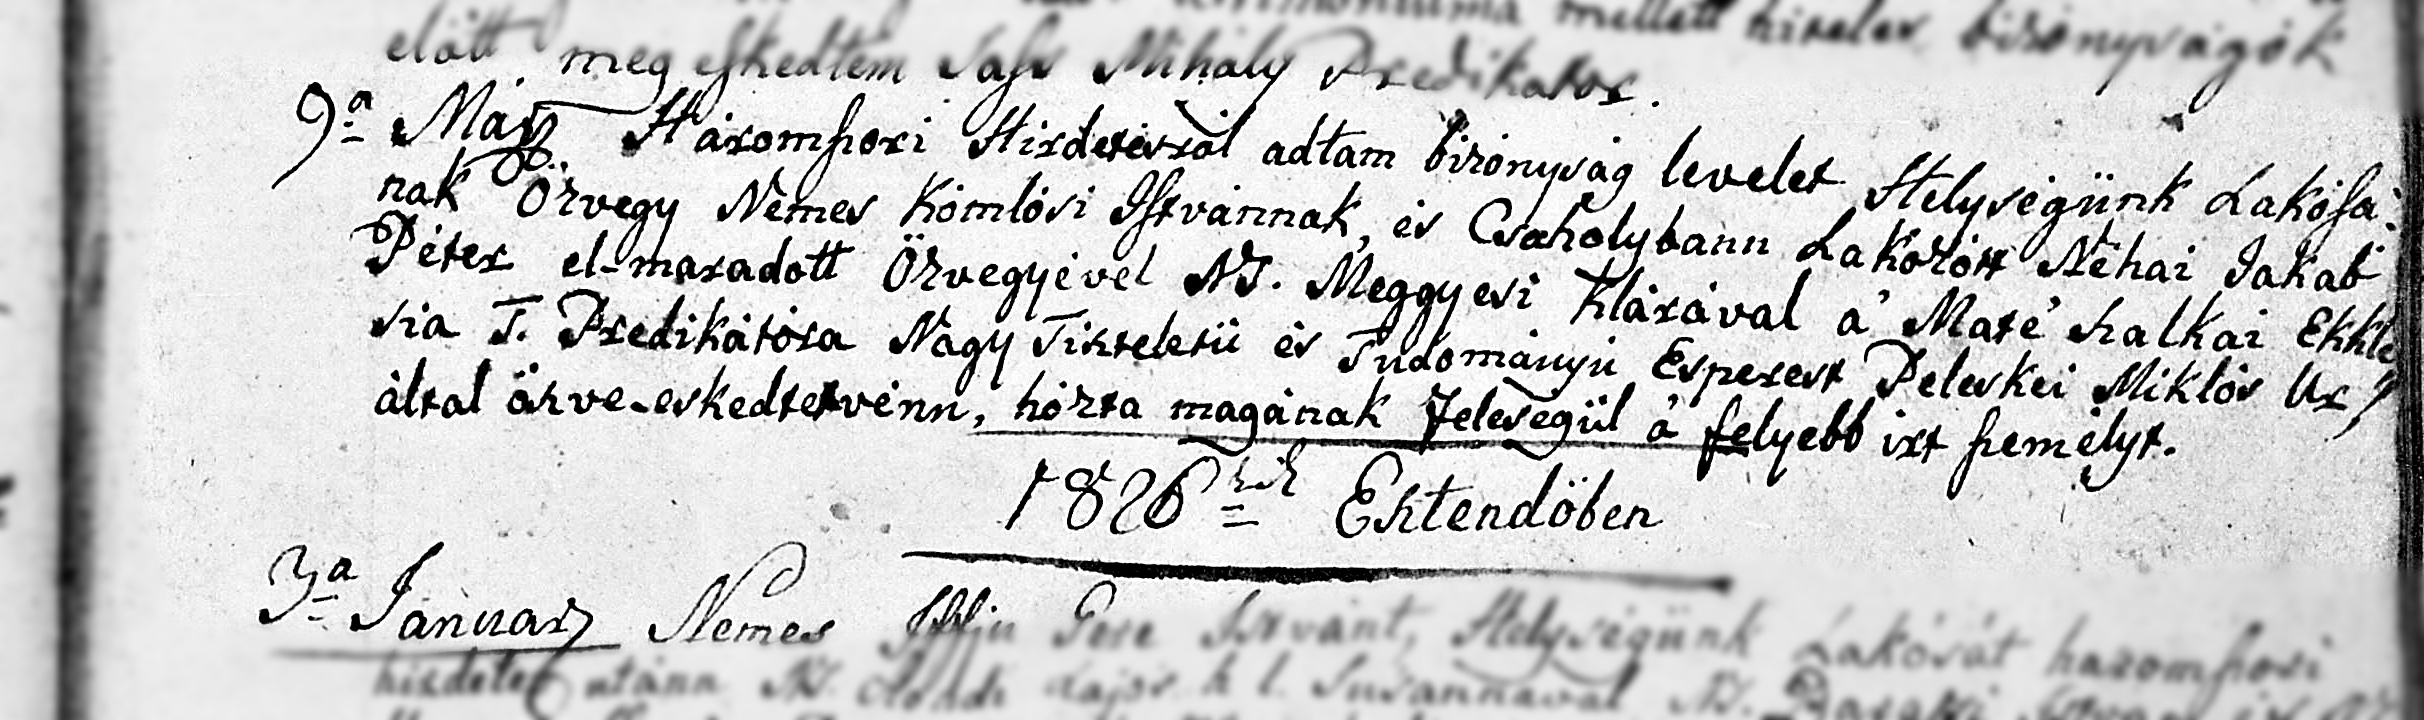 mellett hiteles bizonyságok
előtt meg esketdem Sass Mihály Predikator.
9ª Máji Háromszori Hirdetésről adtam bizonyság levelet Helységünk Lakóssá-
nak Özvegy Nemes Komlósi Istvánnak, és Csaholybann Lakozott Néhai Jakab
Péter el-maradott Özvegyével NS. Meggyesi Klárával a' Máté Szalkai Ekklé
sia T. Predikátóra Nagy Tiszteletű és Tudományú Esperest Peleskei Miklós Ur
által özve-eskedtetvénn, hozta magának feleségül a' felyebb irt személyt.
1826dik Esztendőben
3ª Januar Nemes Ifjú Pere Istvánt, Helységünk Lakósát háromszori
hirdetés utánn NS. Lajos h. l. Susannával NS.